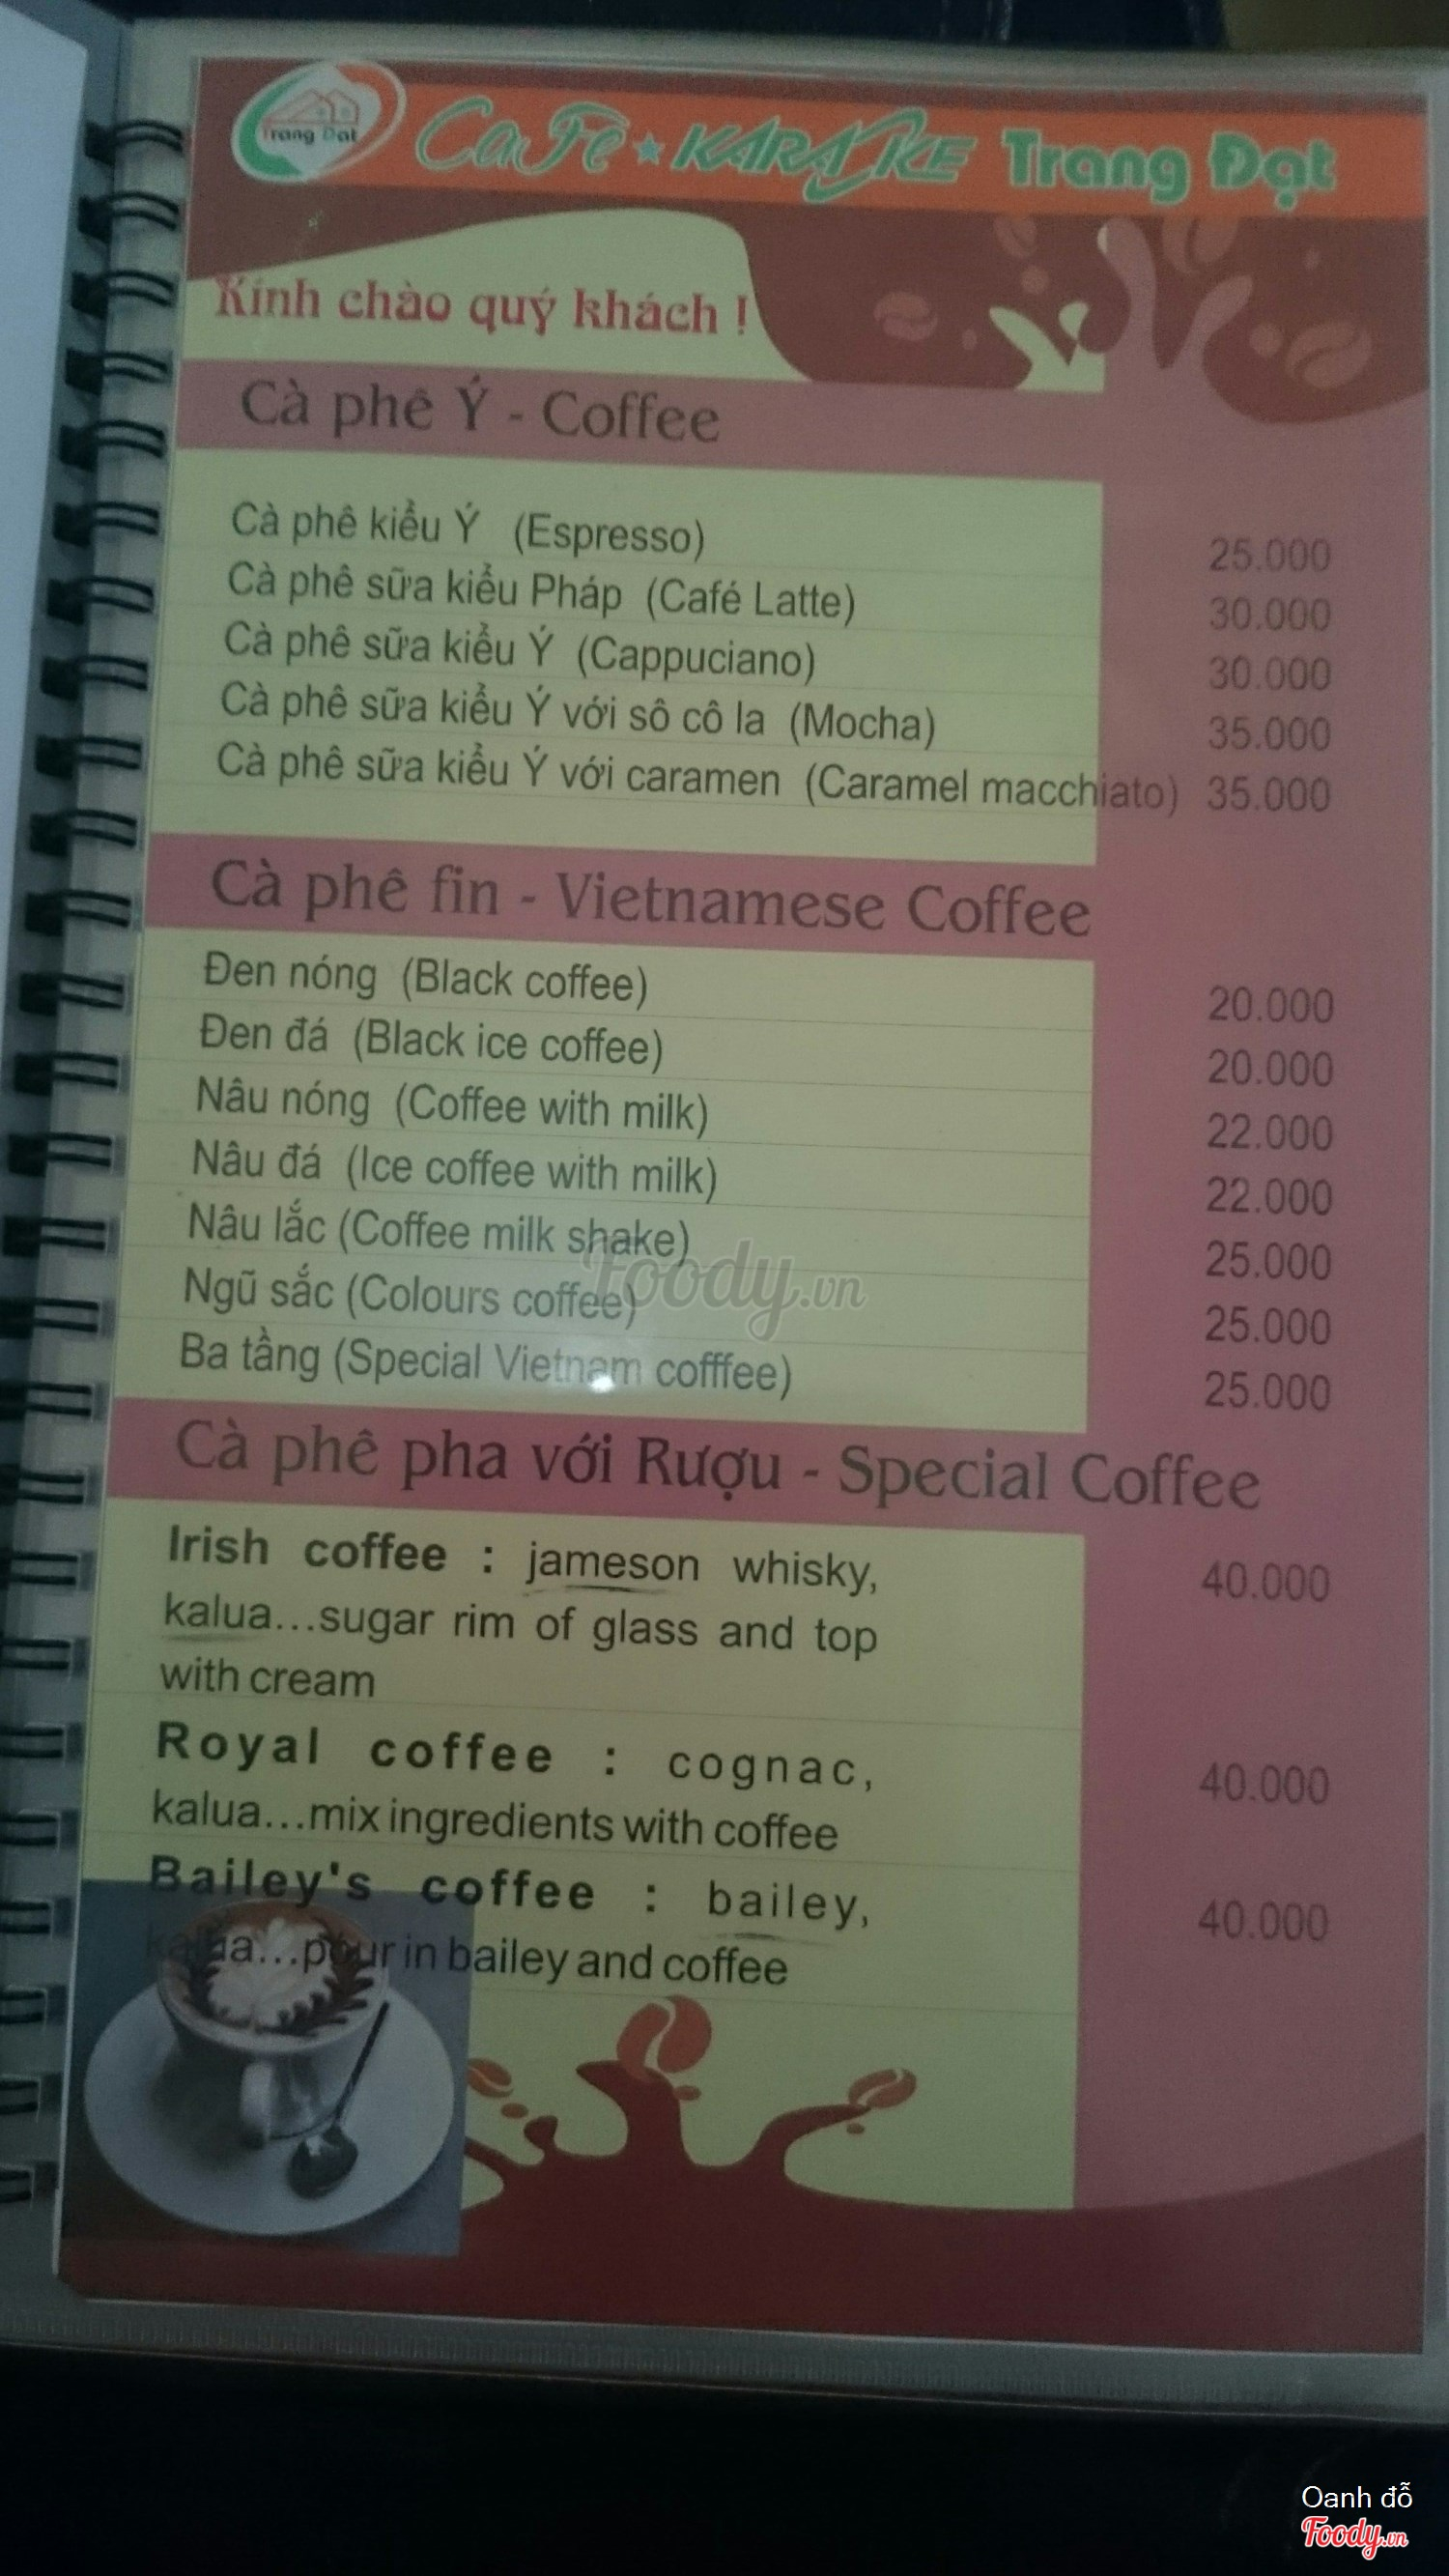 Trang Đạt
CaFe ★ KARAOKE Trang Đạt
Kính chào quý khách !
Cà phê Ý - Coffee
Cà phê kiểu Ý (Espresso) 25.000
Cà phê sữa kiểu Pháp (Café Latte) 30.000
Cà phê sữa kiểu Ý (Cappuciano) 30.000
Cà phê sữa kiểu Ý với sô cô la (Mocha) 35.000
Cà phê sữa kiểu Ý với caramen (Caramel macchiato) 35.000
Cà phê fin - Vietnamese Coffee
Đen nóng (Black coffee) 20.000
Đen đá (Black ice coffee) 20.000
Nâu nóng (Coffee with milk) 22.000
Nâu đá (Ice coffee with milk) 22.000
Nâu lắc (Coffee milk shake) 25.000
Ngũ sắc (Colours coffee) 25.000
Ba tầng (Special Vietnam cofffee) 25.000
Foody.vn
Cà phê pha với Rượu - Special Coffee
Irish coffee : jameson whisky, 40.000
kalua...sugar rim of glass and top
with cream
Royal coffee : cognac, 40.000
kalua...mix ingredients with coffee
Bailey's coffee : bailey, 40.000
kalua...pour in bailey and coffee
Oanh đỗ
Foody.vn